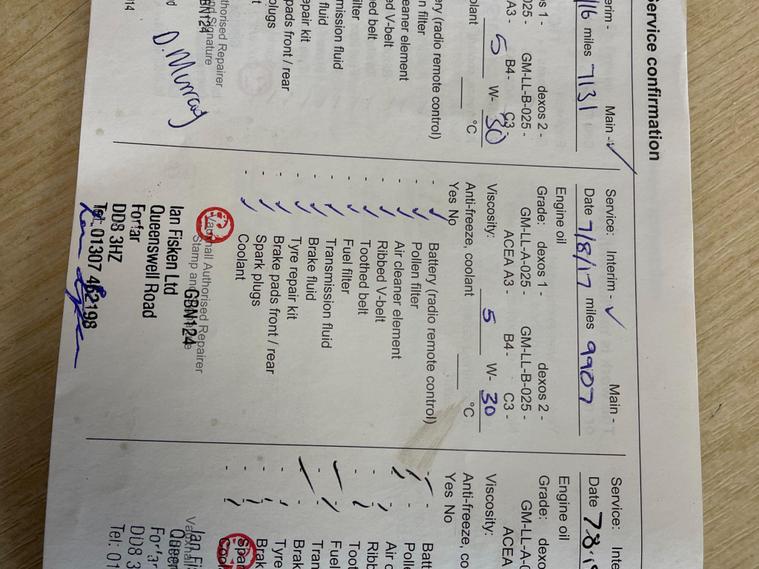 Service confirmation
Main - ✓
/16 miles 7131
dexos 2 -
GM-LL-B-025 -
B4- C3 -
5 W- 30
°C
ery (radio remote control)
n filter
eaner element
ed V-belt
ed belt
ilter
mission fluid
fluid
epair kit
pads front / rear
plugs
t
thorised Repairer
nd Signature
GBN124
D. Murray
Service: Interim - ✓ Main -
Date 7/8/17 miles 9907
Engine oil
Grade: dexos 1 - dexos 2 -
GM-LL-A-025 - GM-LL-B-025 -
ACEA A3 - B4- C3 -
Viscosity: 5 W- 30
Anti-freeze, coolant °C
Yes No
- ✓ Battery (radio remote control)
- ✓ Pollen filter
- ✓ Air cleaner element
- ✓ Ribbed V-belt
- ✓ Toothed belt
- ✓ Fuel filter
- ✓ Transmission fluid
- ✓ Brake fluid
- ✓ Tyre repair kit
- ✓ Brake pads front / rear
- ✓ Spark plugs
- ✓ Coolant
Vauxhall Authorised Repairer
Stamp and
GBN124
Ian Fisken Ltd
Queenswell Road
Forfar
DD8 3HZ
Tel: 01307 462198
Service: Inte
Date 7.8.1
Engine oil
Grade: dexo
GM-LL-A-0
ACEA
Viscosity:
Anti-freeze, co
Yes No
Batt
Polle
Air c
Ribb
Toot
Fuel
Tran
Brak
Tyre
Brak
Spa
Coo
Ian Fi
Queen
Forfa
DD8 3
Tel: 01